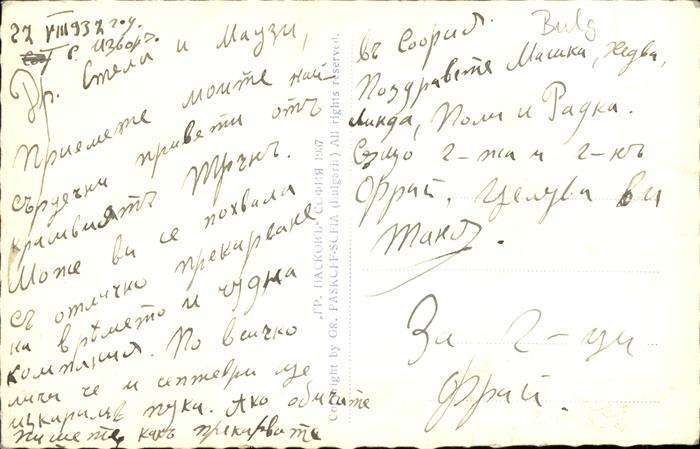 22 VIII 937 год.
с. Изворъ.
Др. Стела и Маузи,
Приемете моите най-
сърдечни привети отъ
Трънъ.
Може ви се похваля
съ отлично прекарване
на времето и чудна
компания. По всичко
личи че и септември ще
изкарамъ тука. Ако обичате
пишете, какъ прекарвате
въ София.
Поздравете Машка, Недва,
Линда, Поли и Радка.
Също г-жа и г-нъ
Фрай. Целува ви
Таня.
За г-ци
Фрай.
Bulg
„ГР. ПАСКОВЪ", СОФИЯ 1937
Copyright by GR. PASKOFF-SOFIA (Bulgarie) All rights reserved.